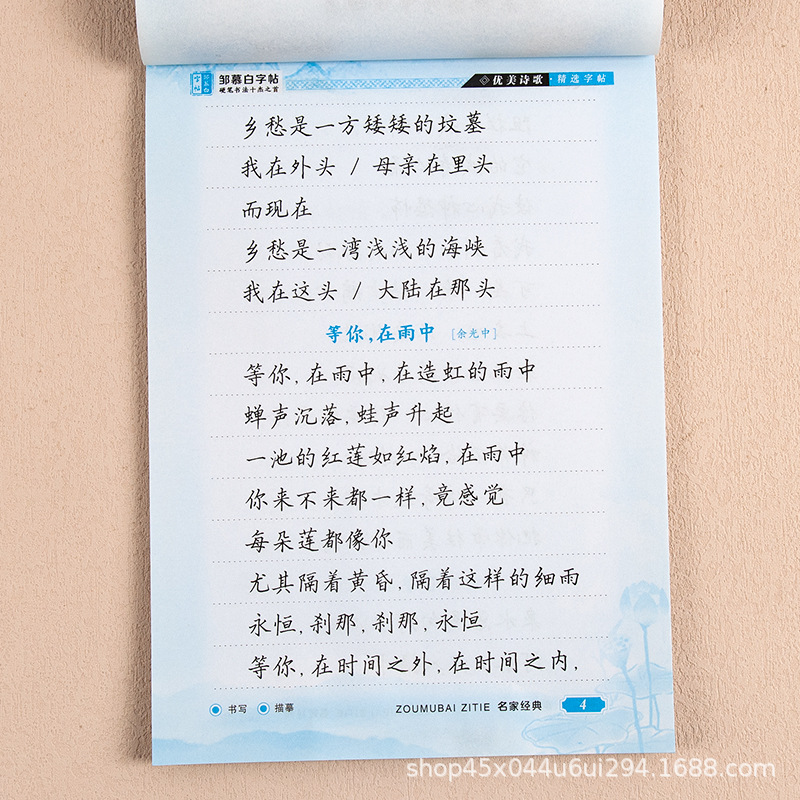 邹慕白字帖
硬笔书法十杰之首
优美诗歌·精选字帖
乡愁是一方矮矮的坟墓
我在外头 / 母亲在里头
而现在
乡愁是一湾浅浅的海峡
我在这头 / 大陆在那头
等你,在雨中 [余光中]
等你,在雨中,在造虹的雨中
蝉声沉落,蛙声升起
一池的红莲如红焰,在雨中
你来不来都一样,竟感觉
每朵莲都像你
尤其隔着黄昏,隔着这样的细雨
永恒,刹那,刹那,永恒
等你,在时间之外,在时间之内,
书写 描摹 ZOUMUBAI ZITIE 名家经典 4
shop45x044u6ui294.1688.com